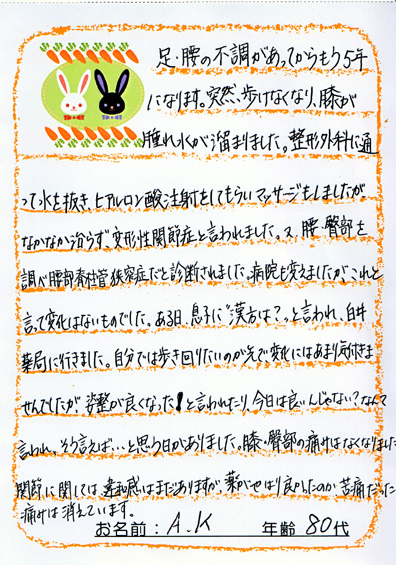 足・腰の不調があってからもう5年
になります。突然、歩けなくなり、膝が
腫れ水が溜まりました。整形外科に通
って水を抜き、ヒアルロン酸注射をしてもらいマッサージもしましたが
なかなか治らず、変形性関節症と言われました。又、腰・臀部を
調べ腰部脊柱管狭窄症だと診断されました。病院も変えましたが、これと
言って変化はないものでした。ある日、息子に"漢方は?"と言われ、臼井
薬局に行きました。自分では歩き回りたいのが先で、変化にはあまり気付きま
せんでしたが、姿勢が良くなった!と言われたり、今日は良いんじゃない?なんて
言われ、そう言えば…と思う日がありました。膝・臀部の痛みはなくなりました
関節に関しては違和感はまだありますが、薬がやはり良かったのか、苦痛だった
痛みは消えています。
お名前: A.K 年齢 80代